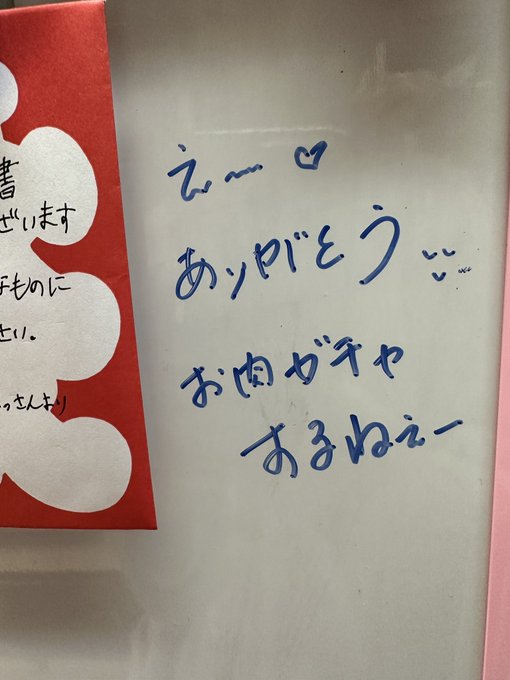 書
ざいます
なものに
さい。
っさんより
えー♡
ありがとう
お肉ガチャ
するねぇー